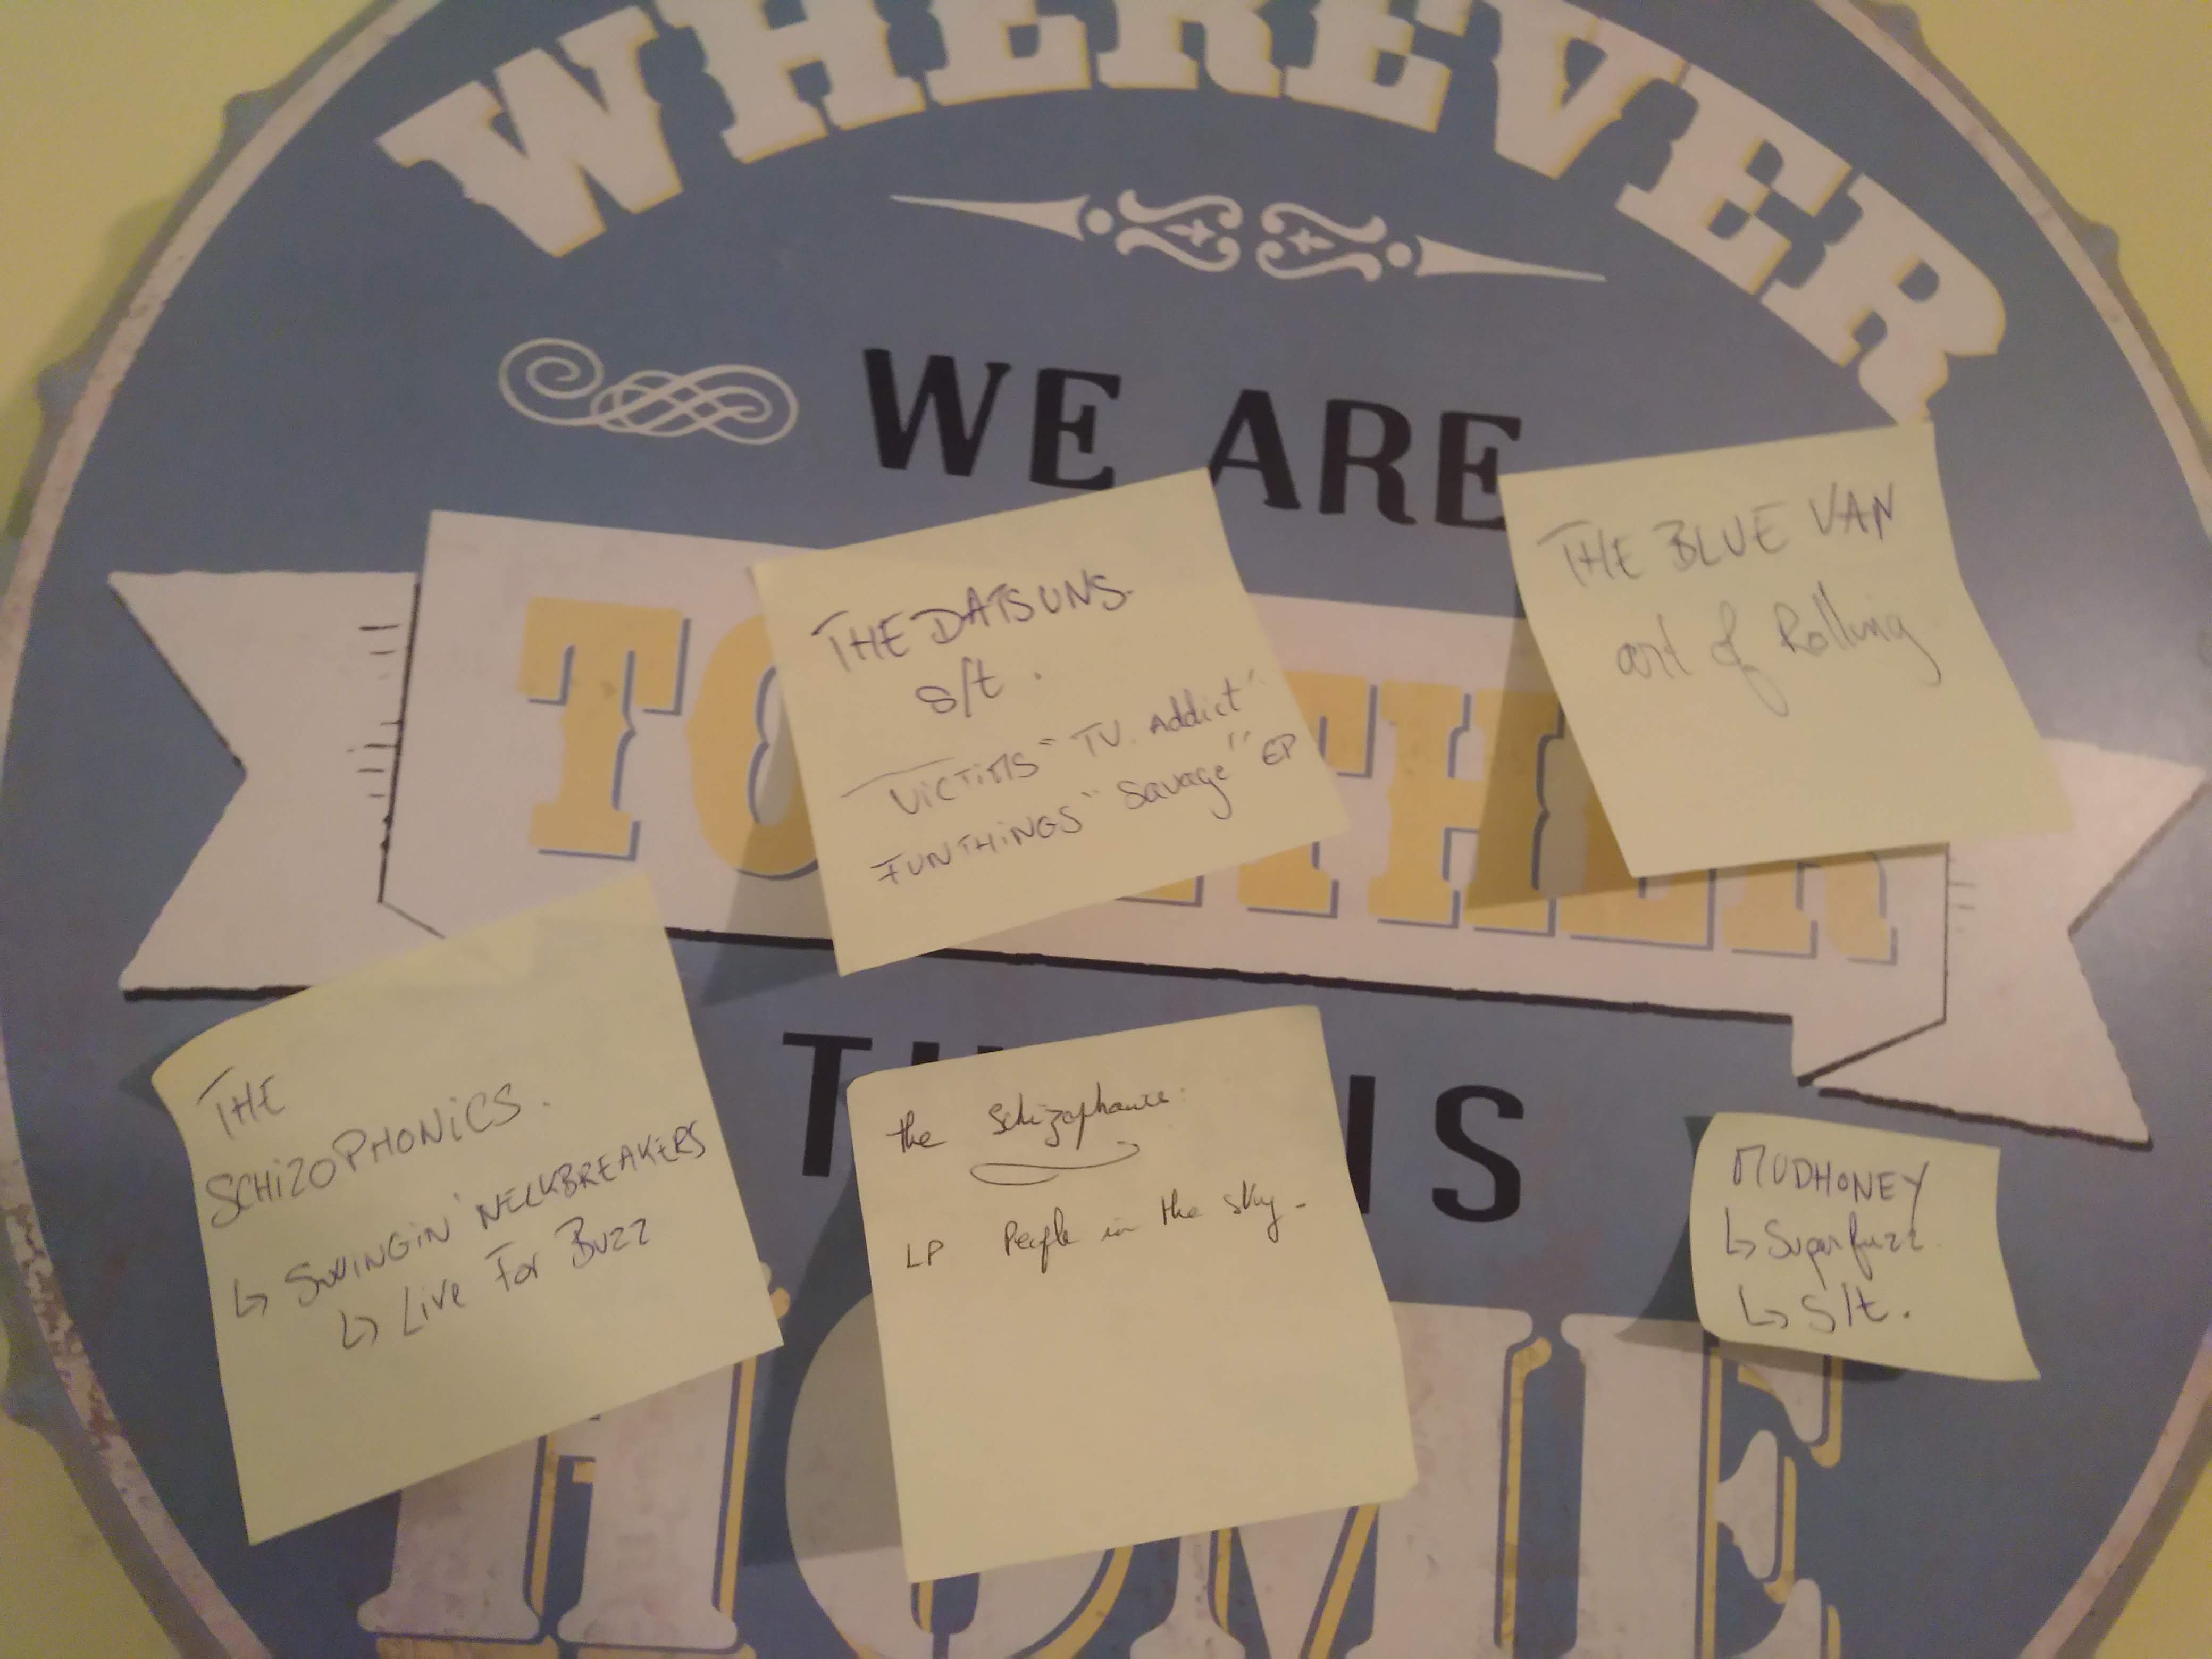 WHEREVER
WE ARE
THE DATSUNS.
s/t.
VICTIMS "TV. Addict"
FUN THINGS "Savage" EP
THE BLUE VAN
art of Rolling
THE
SCHIZOPHONICS.
↳ SWINGIN' NECKBREAKERS
↳ Live For Buzz
the Schizophonics:
LP People in the sky-
IS
MUDHONEY
↳ Superfuzz.
↳ S/t.
HOME